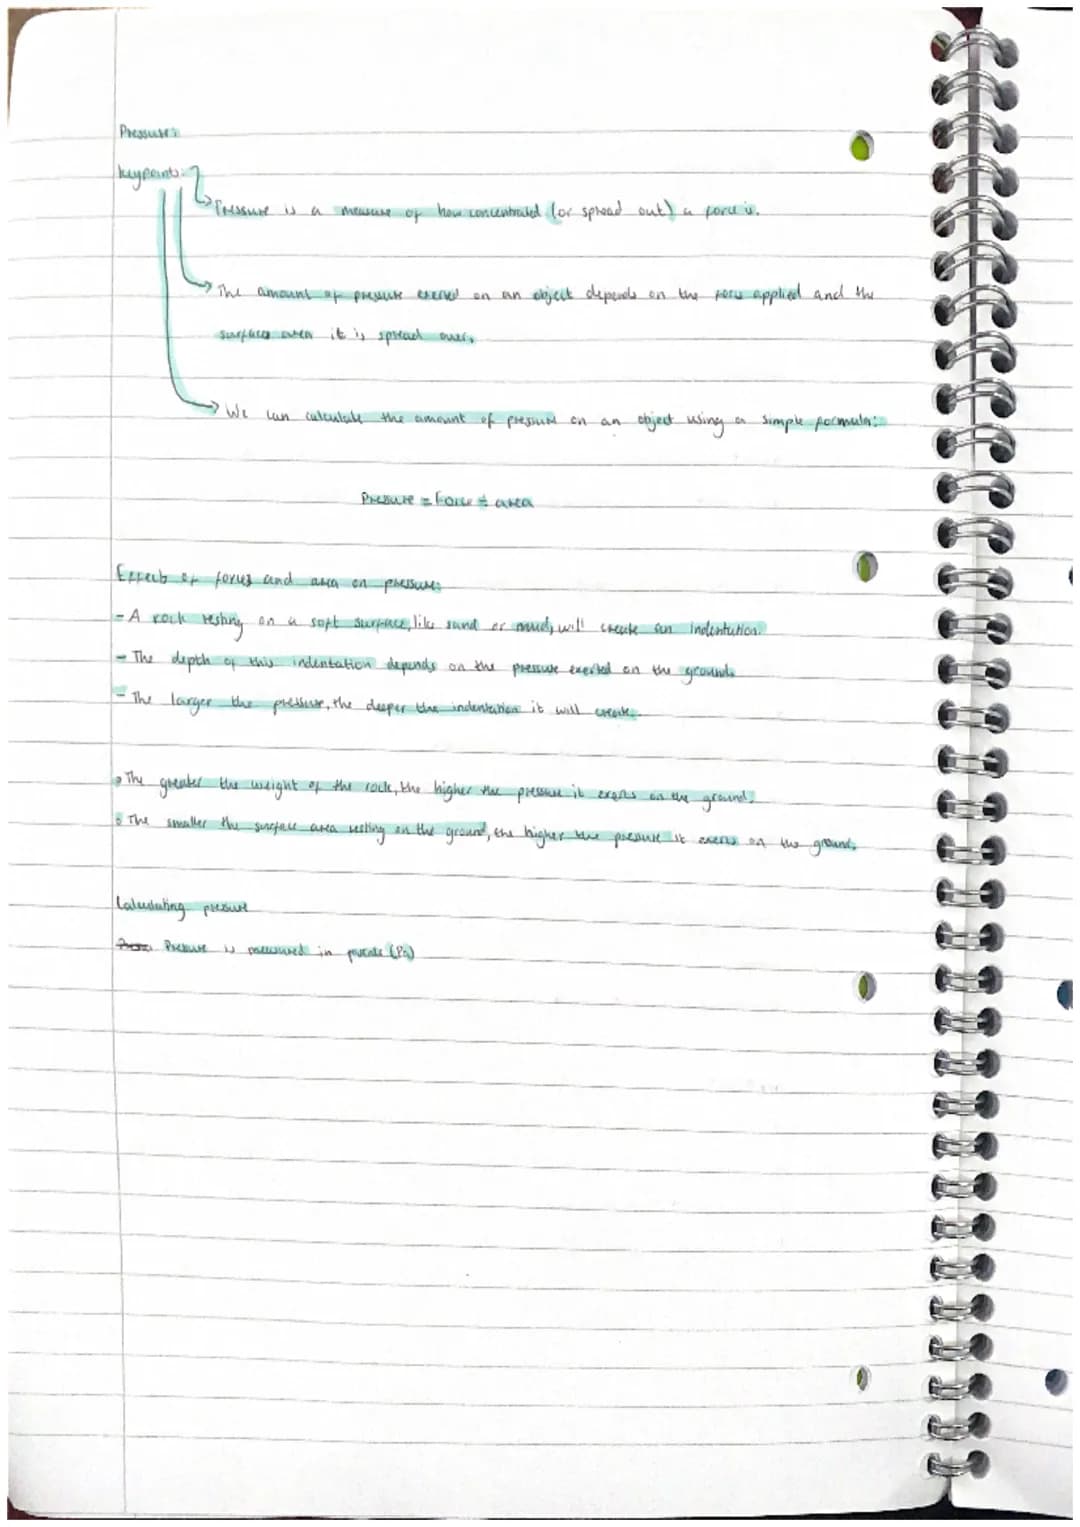 Pressure:
keypoints:
Pressure is a measure of how concentrated (or spread out) a force is.
The amount of pressure exerted on an object depends on the force applied and the
surface area it is spread over.
We can calculate the amount of pressure on an object using a simple formula:
Pressure = Force ÷ area
Effects of forces and area on pressure:
- A rock resting on a soft surface, like sand or mud, will create an indentation.
- The depth of this indentation depends on the pressure exerted on the ground.
- The larger the pressure, the deeper the indentation it will create.
• The greater the weight of the rock, the higher the pressure it exerts on the ground.
• The smaller the surface area resting on the ground, the higher the pressure it exerts on the ground.
Calculating pressure
Pressure is measured in pascals (Pa)